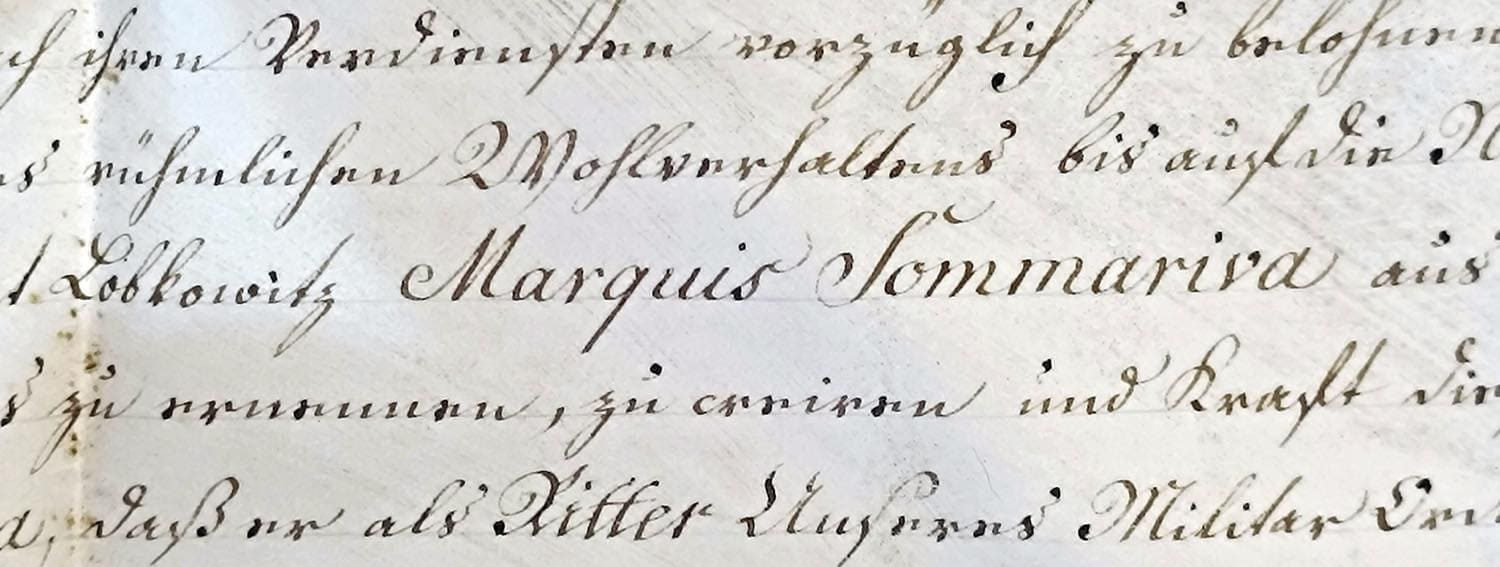 ihren Verdiensten vorzüglich zu belohnen
rühmlichen Wohlverhaltens bis auf die
Lobkowitz Marquis Sommariva aus
zu ernennen, zu creiren und Kraft die
daß er als Ritter Unseres Militar Ord